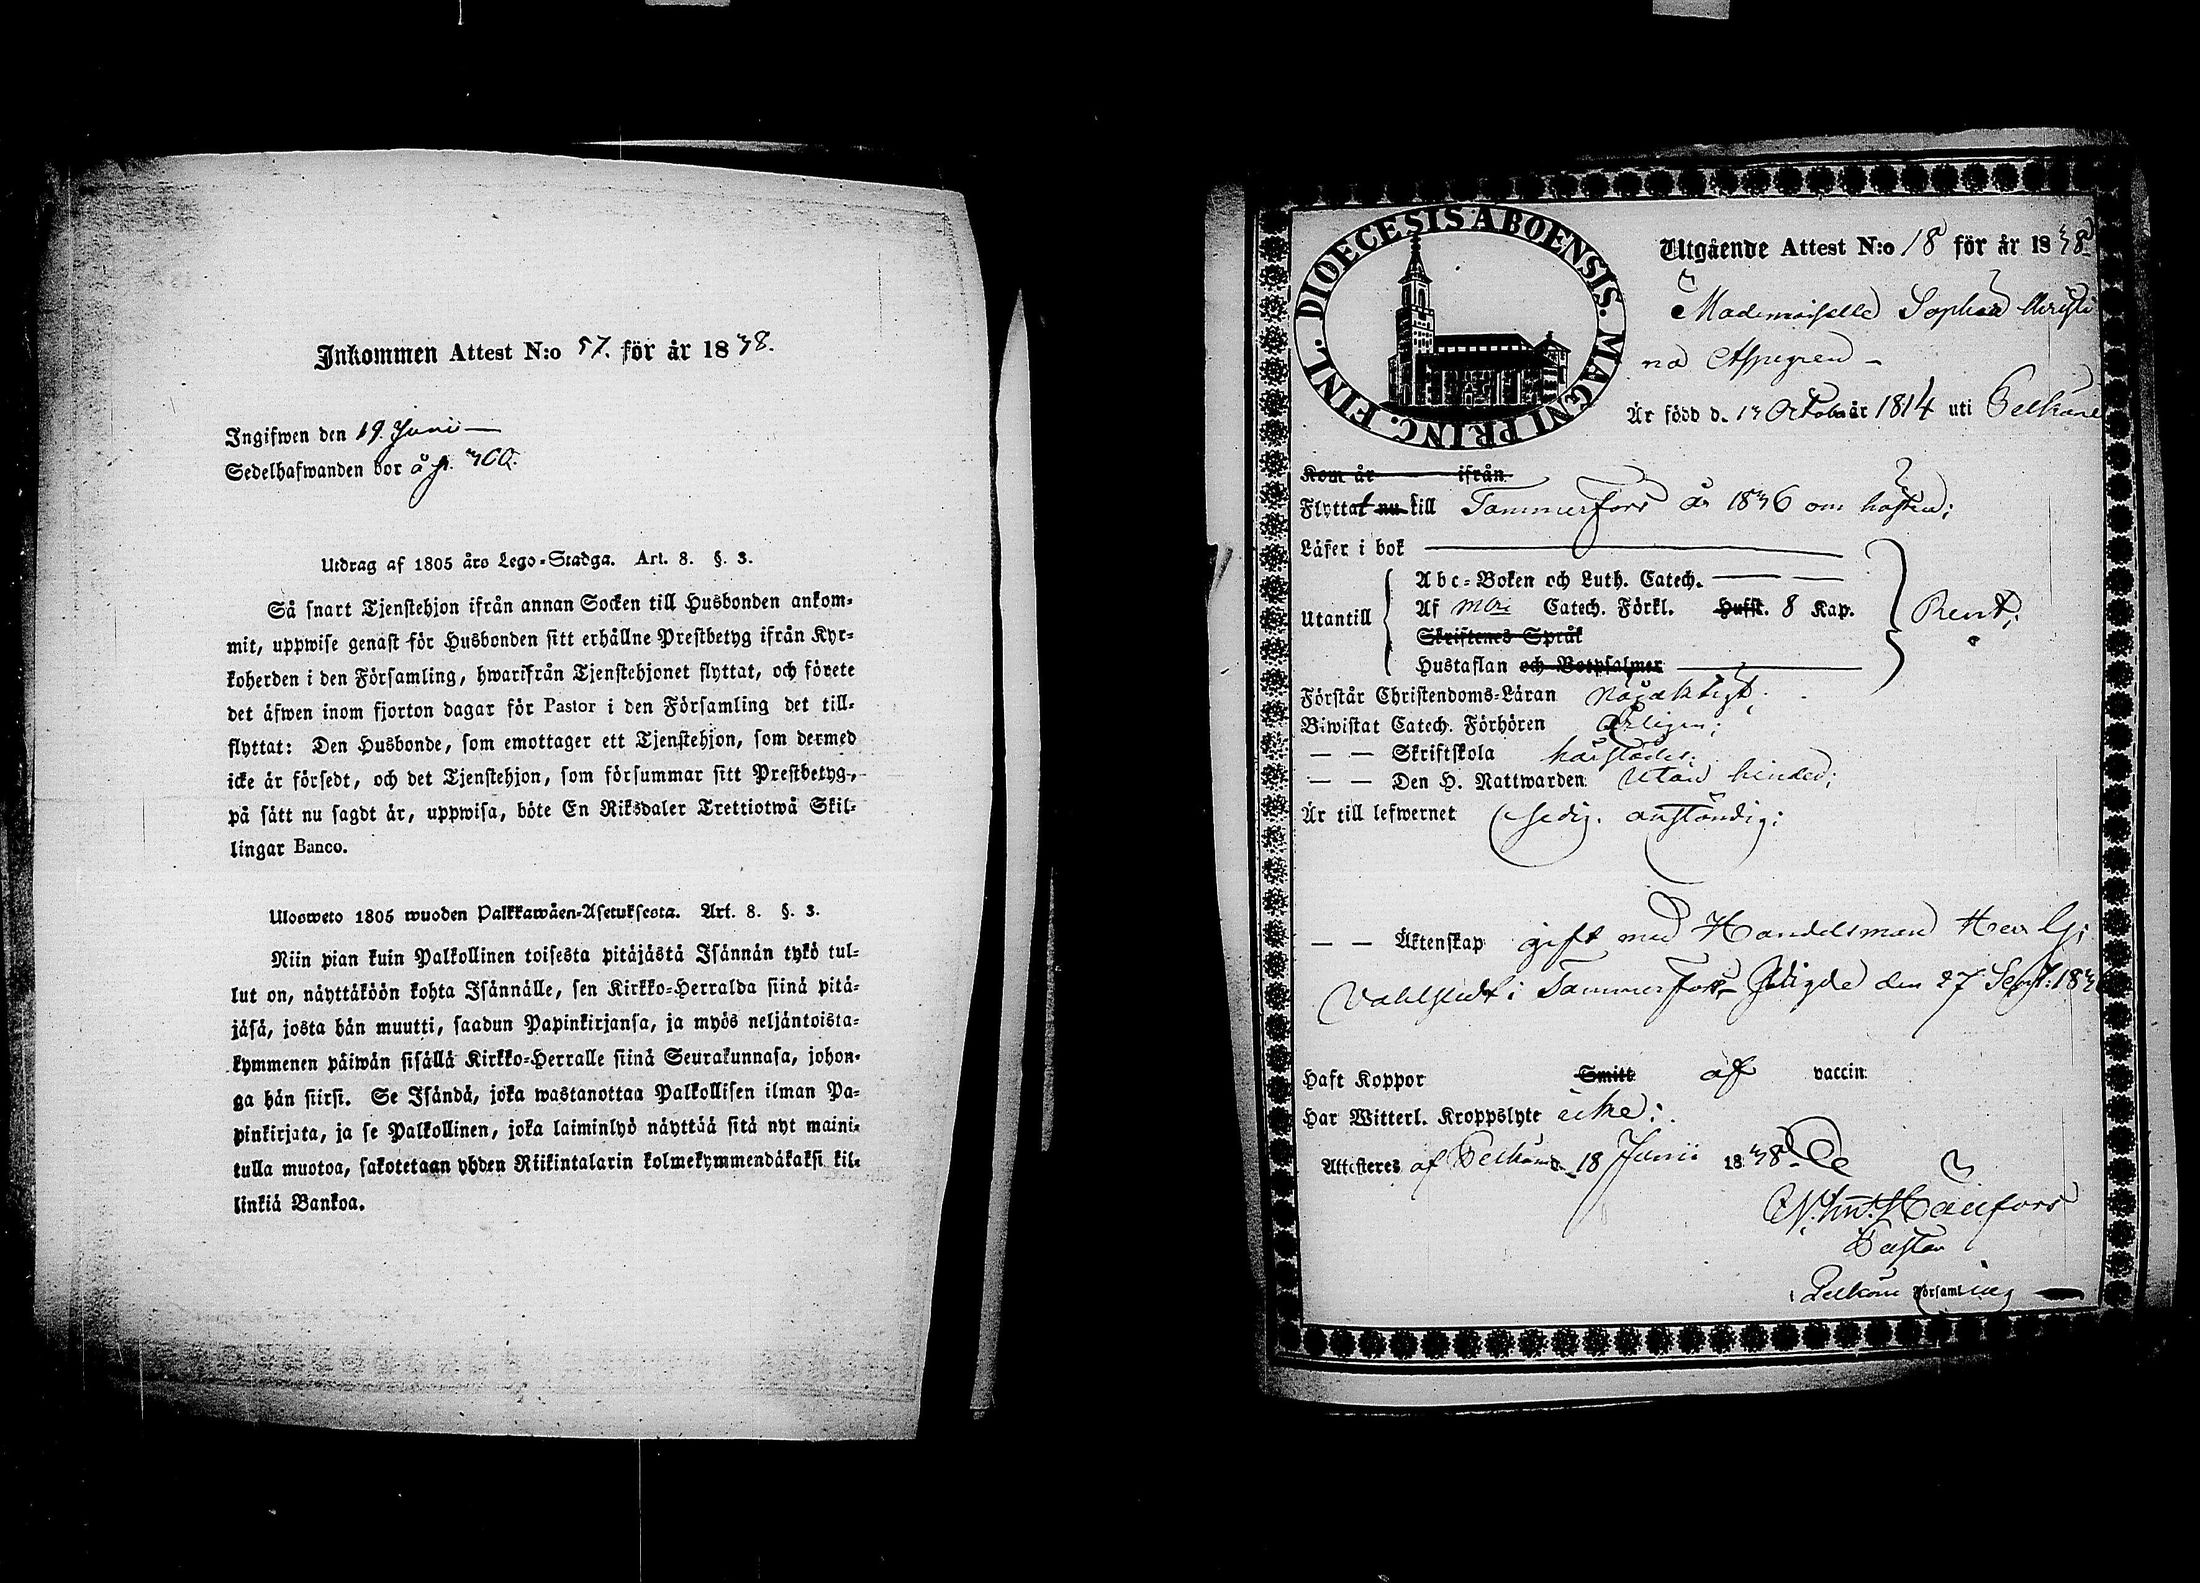 Inkommen Attest N:o 57. för år 1838.
Ingifwen den 19 Juni
Sedelhafwanden bor å p. 300.
Utdrag af 1805 års Lego-Stadga. Art. 8. §. 3.
Så snart Tjenstehjon ifrån annan Socken till Husbonden ankom-
mit, uppwise genast för Husbonden sitt erhållne Prestbetyg ifrån Kyr-
koherden i den Församling, hwarifrån Tjenstehjonet flyttat, och förete
det äfwen inom fjorton dagar för Pastor i den Församling det till-
flyttat: Den Husbonde, som emottager ett Tjenstehjon, som dermed
icke är försedt, och det Tjenstehjon, som försummar sitt Prestbetyg,
på sätt nu sagdt är, uppwisa, böte En Riksdaler Trettiotwå Skil-
lingar Banco.
Ulosweto 1805 wuoden Palkkawäen-Asetuksesta. Art. 8. §. 3.
Niin pian kuin Palkollinen toisesta pitäjästä Isännän tykö tul-
lut on, näyttäköön kohta Isännälle, sen Kirkko-Herralda siinä pitä-
jäsä, josta hän muutti, saadun Papinkirjansa, ja myös neljäntoista-
kymmenen päiwän sisällä Kirkko-Herralle siinä Seurakunnasa, johon-
ga hän siirsi. Se Isändä, joka wastanottaa Palkollisen ilman Pa-
pinkirjata, ja se Palkollinen, joka laiminlyö näyttää sitä nyt maini-
tulla muotoa, sakotetaan yhden Riikintalarin kolmekymmendäkaksi kil-
lingiä Bankoa.
DIOECESIS ABOENSIS. MAGNI PRINC. FINL.
Utgående Attest N:o 18 för år 1838
Mademoiselle Sophia Christi
na Aspegren
Är född d. 13 October 1814 uti Pelkäne
Kom år ifrån
Flyttat nu till Tammerfors år 1836 om hösten;
Läser i bok
Abc-Boken och Luth. Catech.
Utantill Af Catech. Förkl. Hufst. 8 Kap. Rent;
Skriftenes Språk
Hustaflan och Botpsalmer
Förstår Christendoms-Läran nöjaktigt;
Biwistat Catech. Förhören årligen;
— — Skriftskola härstädes;
— — Den H. Nattwarden utan hinder;
Är till lefwernet sedig. anständig;
— — Äktenskap gift med Handelsman Herr G:
Vahlstedt i Tammerfors den 27 Sept: 183
Haft Koppor Smitt af vaccin
Har Witterl. Kroppslyte icke;
Attesteres af Pelkäne 18 Junii 1838.
Pastor
i Pelkäne Församling